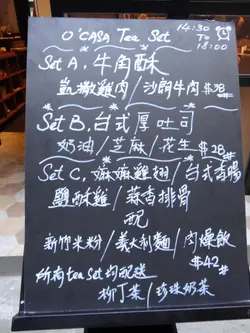 O'CASA Tea Set
14:30
To
18:00
Set A. 牛角酥
凱撒雞肉/沙朗牛肉 $38
Set B. 台式厚吐司
奶油/芝麻/花生 $28
Set C. 嫲嫲雞翅/台式香腸
鹽酥雞/蒜香排骨
配
新竹米粉/義大利麵/肉燥飯
$42
所有tea Set均配送
柳丁茶/珍珠奶茶